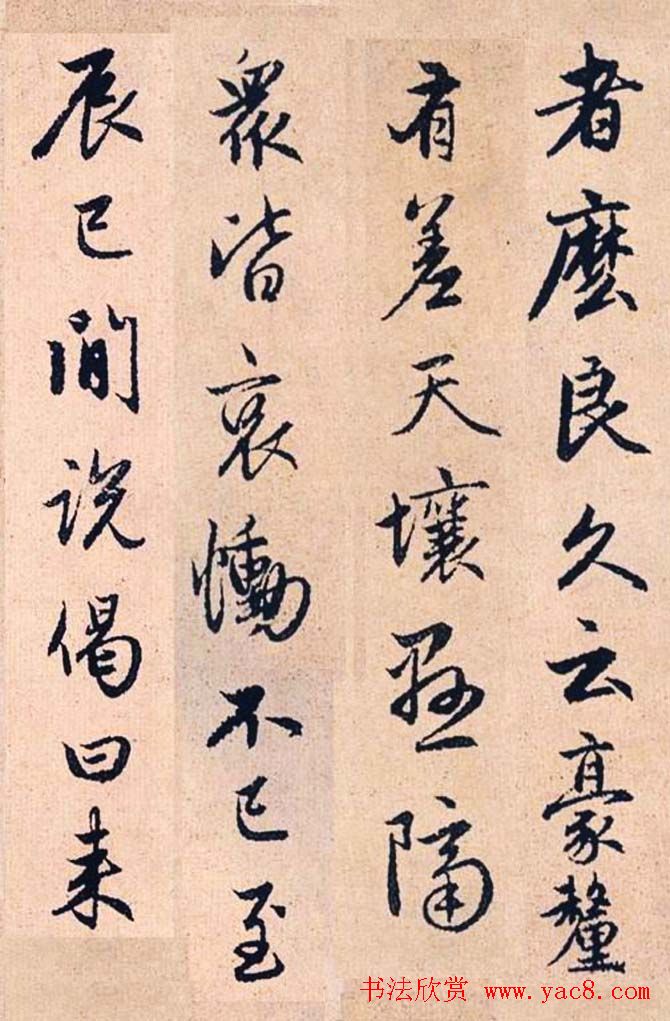 者麼良久云豪釐
有差天壤懸隔
衆皆哀慟不已至
辰巳間説偈曰來
书法欣赏 www.yac8.com